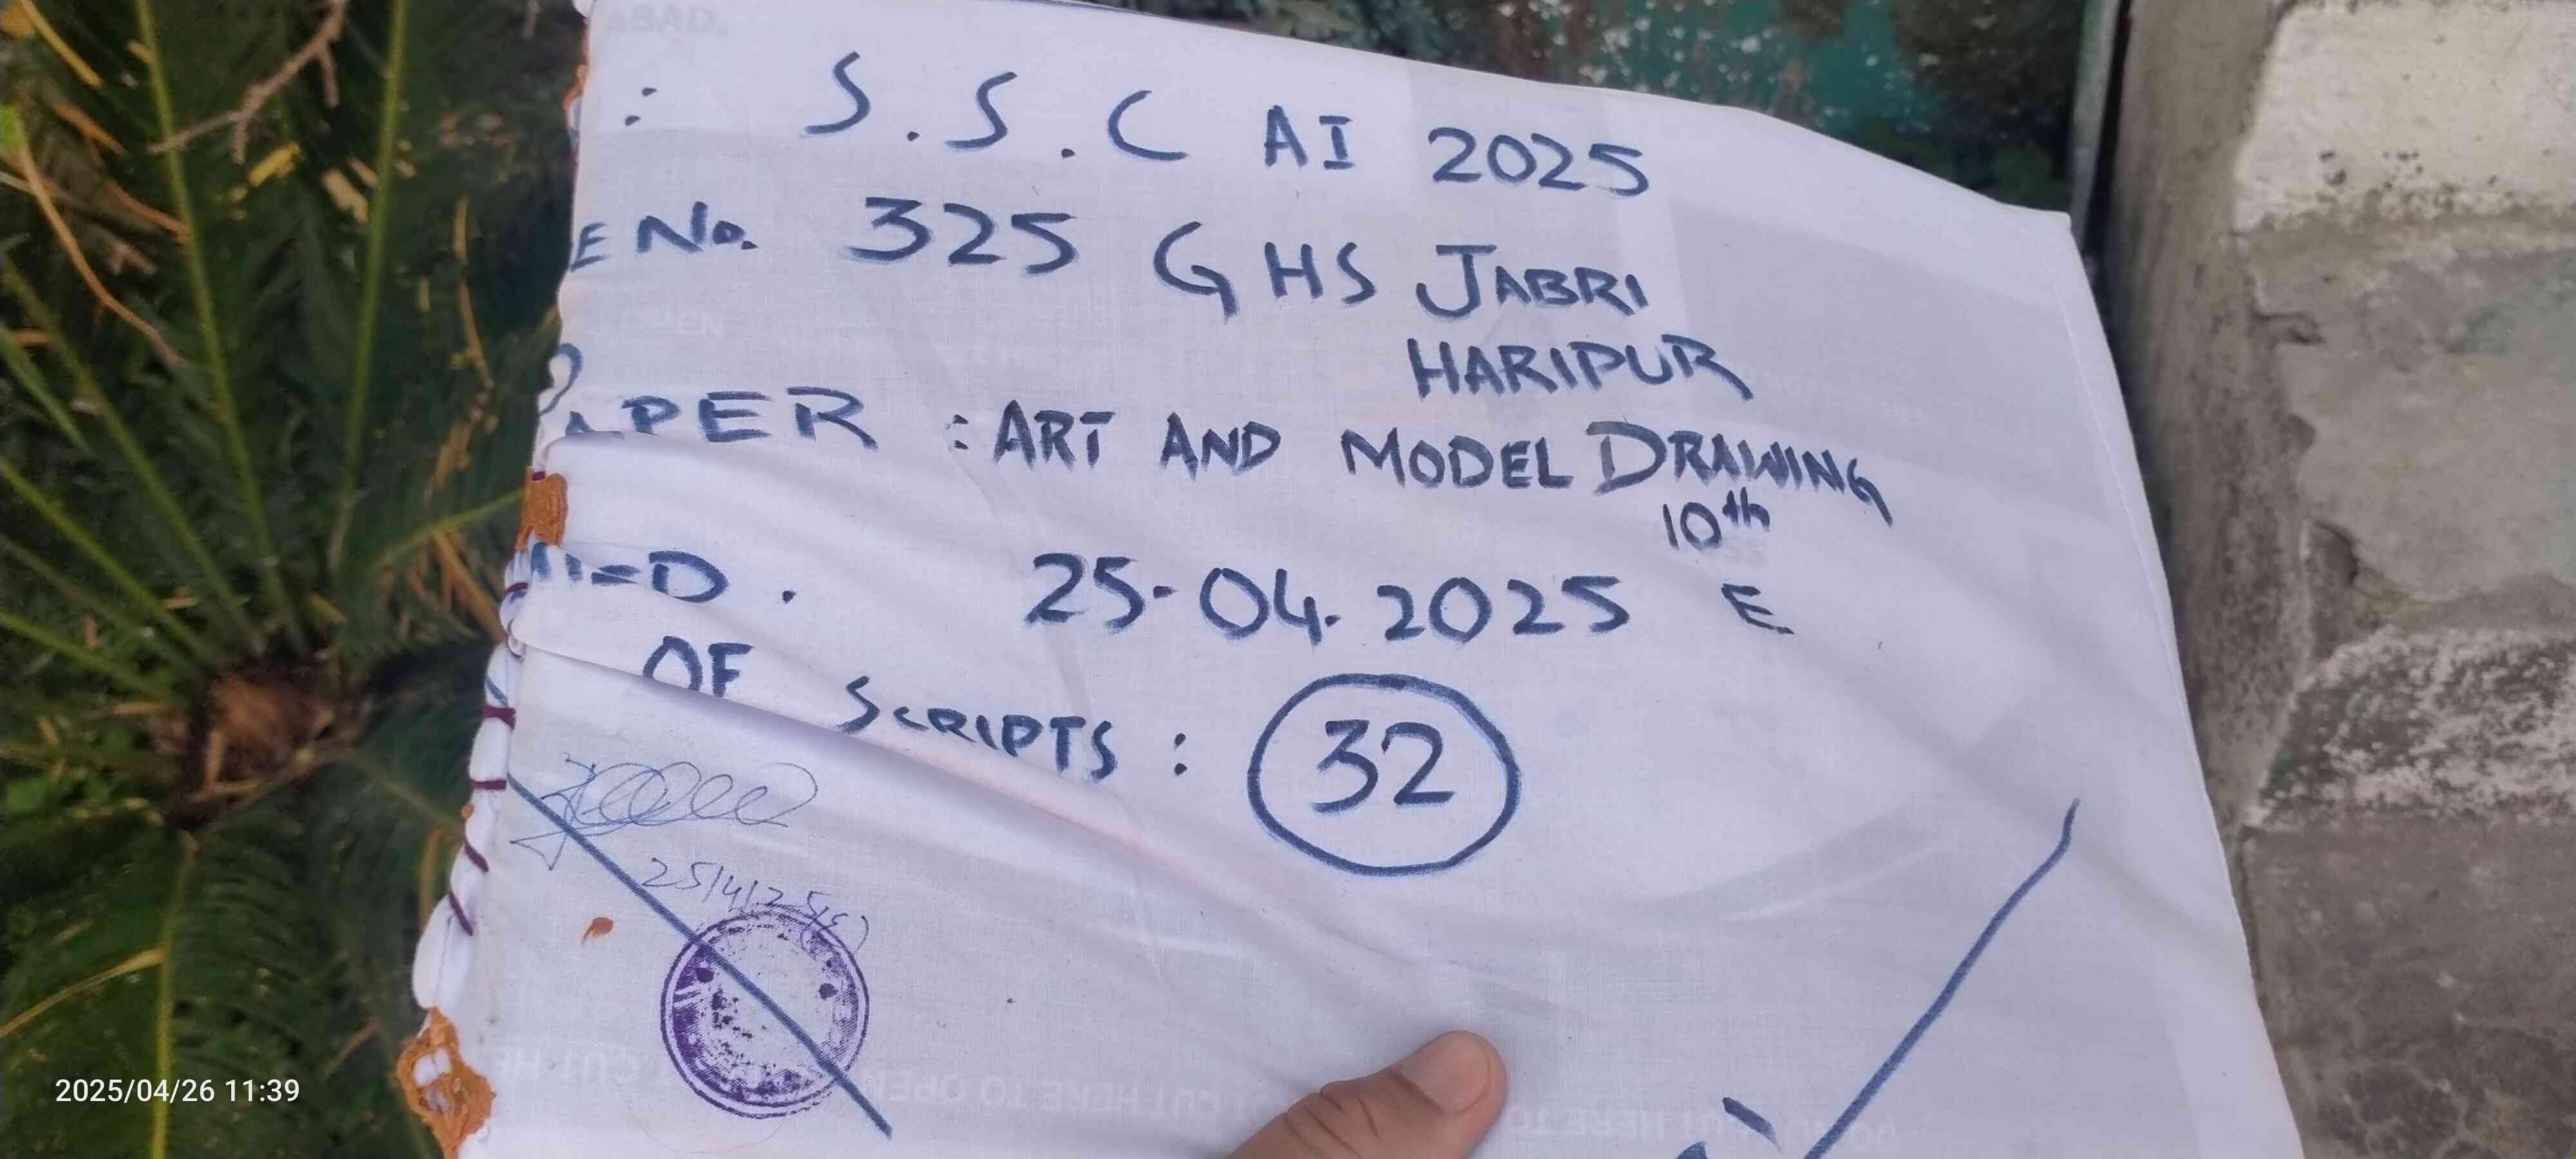 ABAD.
: S.S.C AI 2025
E No. 325 GHS JABRI
HARIPUR
APER : ART AND MODEL DRAWING
10th
25-04-2025 E
OF SCRIPTS : 32
25/4/25(E)
CUT HERE TO OPEN
2025/04/26 11:39